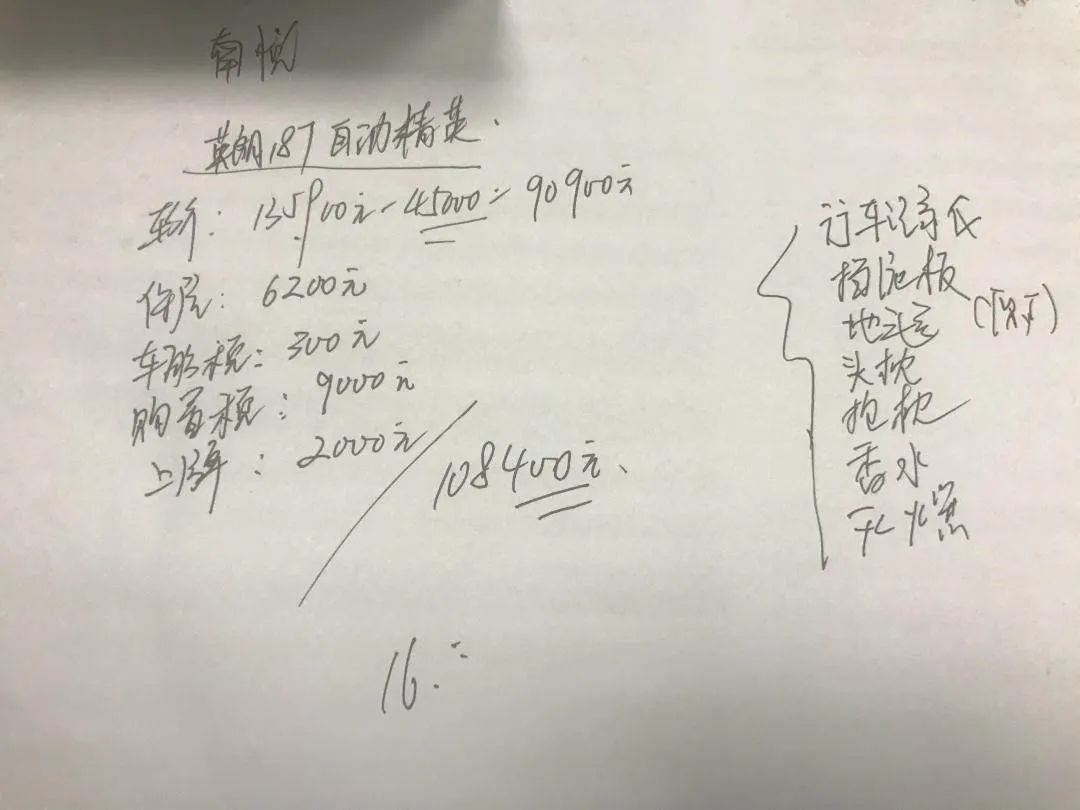 南悦
英朗18T自动精英.
车价: 135900元-45000=90900元
保险: 6200元
车船税: 300元
购置税: 9000元
上牌: 2000元
108400元、
16:
行车记录仪
挡泥板
地毯
头枕
抱枕
香水
灭火器